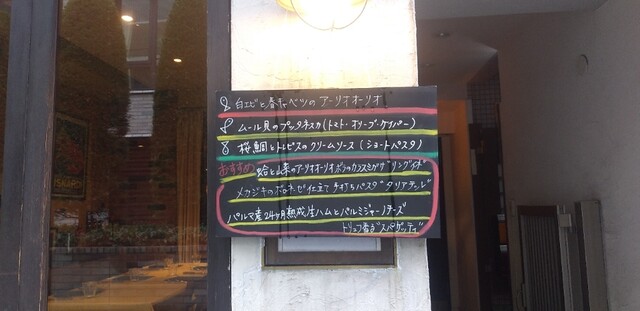 白エビと春キャベツのアーリオオーリオ
ムール貝のプッタネスカ(トマト・オリーブ・ケッパー)
桜鯛とトレビスのクリームソース(ショートパスタ)
おすすめ 蛤と山菜のアーリオオーリオ カラスミがけ"リングイネ"
メカジキのボロネーゼ仕立て 手打ちパスタ"タリアテッレ"
パルマ産24ヶ月熟成生ハムとパルミジャーノチーズ
トリュフ香る"スパゲッティ"